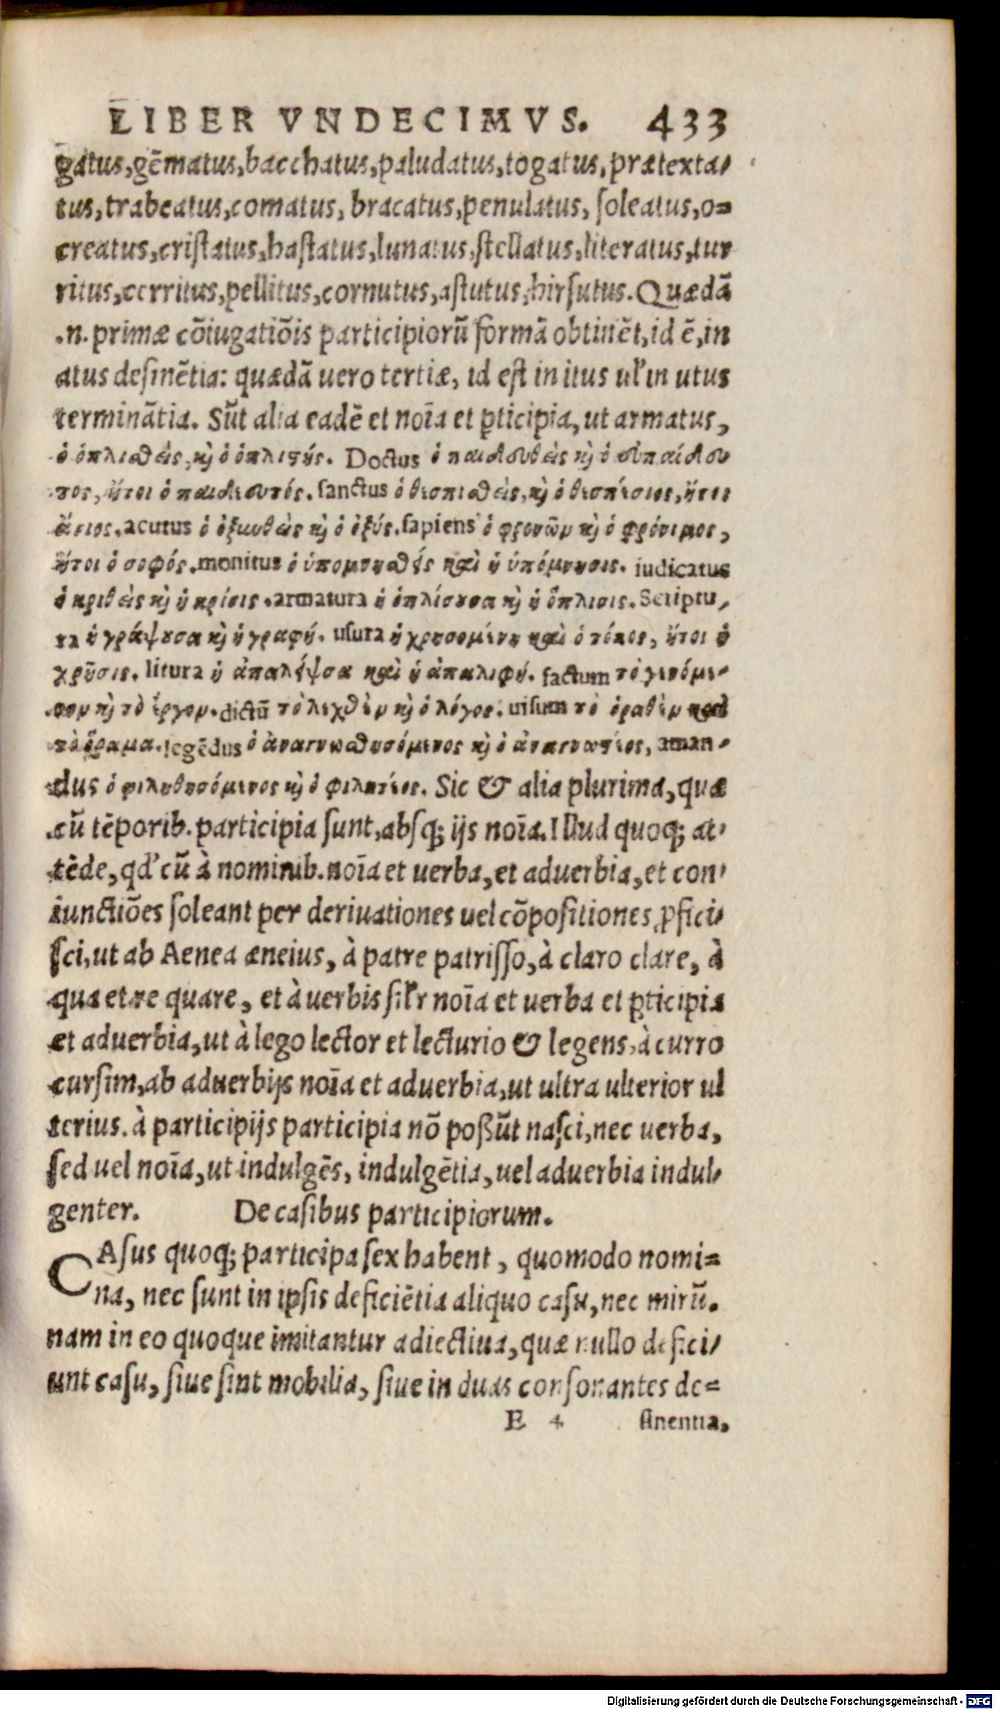 LIBER VNDECIMVS. 433
gatus,gēmatus,bacchatus,paludatus,togatus,prætexta/
tus,trabeatus,comatus, bracatus,penulatus, soleatus,o=
creatus,cristatus,hastatus,lunatus,stellatus,literatus,tur
ritus,cerritus,pellitus,cornutus,astutus,hirsutus.Quædā
.n. primæ cōiugatiōis participiorū formā obtinēt,id ē,in
atus desinētia: quædā uero tertiæ, id est in itus ul'in utus
terminātia. Sūt alia eadē et noīa et ꝑticipia, ut armatus,
ὁ ὁπλισθεὶς, κὴ ὁ ὁπλιτής. Doctus ὁ παιδευθεὶς κὴ ὁ εὐπαίδευ
τος, ἤτοι ὁ παιδευτός. sanctus ὁ θεσπισθεὶς, κὴ ὁ θεσπέσιος, ἤτοι
ἅγιος. acutus ὁ ὀξυνθεὶς κὴ ὁ ὀξύς. sapiens ὁ φρονῶν κὴ ὁ φρόνιμος,
ἤτοι ὁ σοφός. monitus ὁ ὑπομνησθείς καὶ ἡ ὑπόμνησις. iudicatus
ὁ κριθεὶς κὴ ἡ κρίσις. armatura ἡ ὁπλίσουσα κὴ ἡ ὅπλισις. Scriptu/
ra ἡ γράψουσα κὴ ἡ γραφή. usura ἡ χρησομένη καὶ ὁ τόκος, ἤτοι ἡ
χρῆσις. litura ἡ ἀπαλείψουσα καὶ ἡ ἀπαλιφή. factum τὸ γενόμε-
νον κὴ τὸ ἔργον. dictū τὸ λεχθὲν κὴ ὁ λόγος. uisum τὸ ὁραθὲν καὶ
τὸ ὅραμα. legēdus ὁ ἀναγνωσθησόμενος κὴ ὁ ἀναγνωστέος, aman-
dus ὁ φιληθησόμενος κὴ ὁ φιλητέος. Sic & alia plurima, quæ
cū tēporib. participia sunt,absq; ijs noīa. Illud quoq; at/
tēde, qd' cū à nominib. noīa et uerba, et aduerbia, et con/
iunctiōes soleant per deriuationes uel cōpositiones ꝓfici/
sci, ut ab Aenea æneius, à patre patrisso, à claro clare, à
qua et re quare, et à uerbis sil'r noīa et uerba et ꝑticipia
et aduerbia, ut à lego lector et lecturio & legens, à curro
cursim, ab aduerbijs noīa et aduerbia, ut ultra ulterior ul
terius. à participijs participia nō possūt nasci, nec uerba,
sed uel noīa, ut indulgēs, indulgētia, uel aduerbia indul/
genter. De casibus participiorum.
CAsus quoq; participa sex habent, quomodo nomi=
na, nec sunt in ipsis deficiētia aliquo casu, nec mirū.
nam in eo quoque imitantur adiectiua, quæ nullo defici/
unt casu, siue sint mobilia, siue in duas consonantes de=
E 4 sinentia,
Digitalisierung gefördert durch die Deutsche Forschungsgemeinschaft - DFG